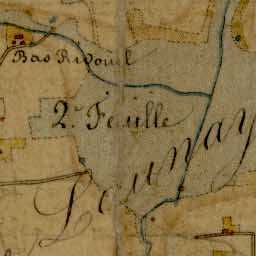 Bas Ridouel
2.e Feuille
Launay